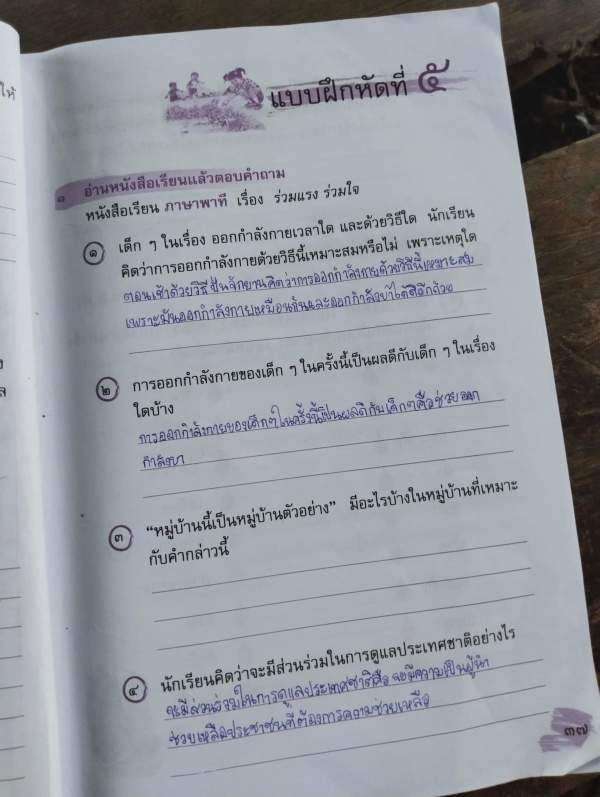 ให้
แบบฝึกหัดที่ ๕
๑ อ่านหนังสือเรียนแล้วตอบคำถาม
หนังสือเรียน ภาษาพาที เรื่อง ร่วมแรง ร่วมใจ
๑ เด็ก ๆ ในเรื่อง ออกกำลังกายเวลาใด และด้วยวิธีใด นักเรียน
คิดว่าการออกกำลังกายด้วยวิธีนี้เหมาะสมหรือไม่ เพราะเหตุใด
ตอนเช้าด้วยวิธีปั่นจักยานคิดว่าการออกกำลังกายด้วยวิธีนี้เหมาะสม
เพราะมันออกกำลังกายเหมือนกันและออกกำลังขาได้ดีอีกด้วย
๒ การออกกำลังกายของเด็ก ๆ ในครั้งนี้เป็นผลดีกับเด็ก ๆ ในเรื่อง
ใดบ้าง
การออกกำลังกายของเด็กๆในครั้งนี้เป็นผลดีกับเด็กๆคือช่วยออก
กำลังขา
๓ “หมู่บ้านนี้เป็นหมู่บ้านตัวอย่าง” มีอะไรบ้างในหมู่บ้านที่เหมาะ
กับคำกล่าวนี้
๔ นักเรียนคิดว่าจะมีส่วนร่วมในการดูแลประเทศชาติอย่างไร
จะมีส่วนร่วมในการดูแลประเทศชาติคือ จะมีความเป็นผู้นำ
ช่วยเหลือประชาชนที่ต้องการความช่วยเหลือ
๓๗